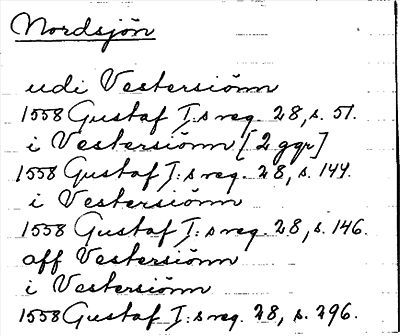 Nordsjön
udi Vestersiönn
1558 Gustaf I:s reg. 28, s. 51.
i Vestersiönn [2 ggr]
1558 Gustaf I:s reg. 28, s. 144.
i Vestersiönn
1558 Gustaf I:s reg. 28, s. 146.
aff Vestersiönn
i Vestersiönn
1558 Gustaf I:s reg. 28, s. 296.